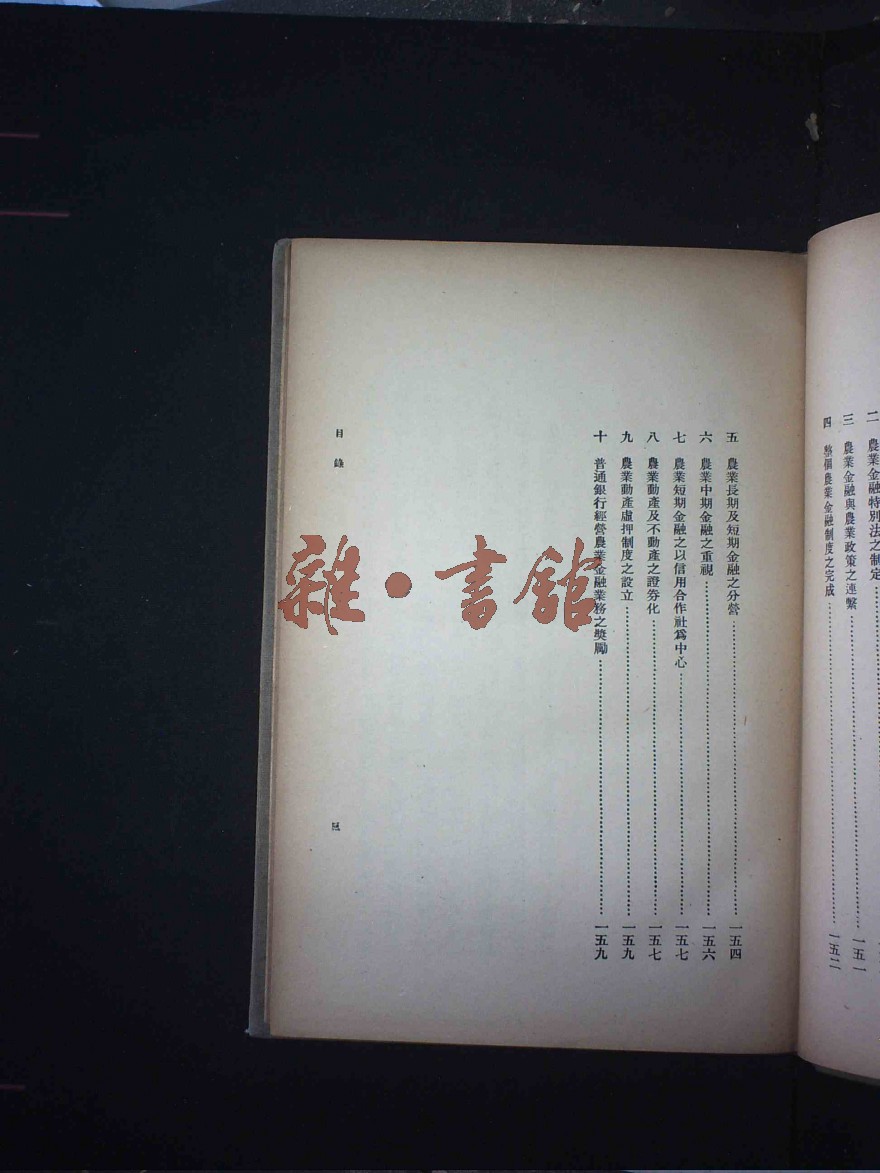 二 農業金融特別法之制定
三 農業金融與農業政策之連繫……一五一
四 整個農業金融制度之完成……一五二
五 農業長期及短期金融之分營……一五四
六 農業中期金融之重視……一五六
七 農業短期金融之以信用合作社爲中心……一五七
八 農業動產及不動產之證券化……一五七
九 農業動產虛押制度之設立……一五九
十 普通銀行經營農業金融業務之獎勵……一五九
目錄
雜·書館